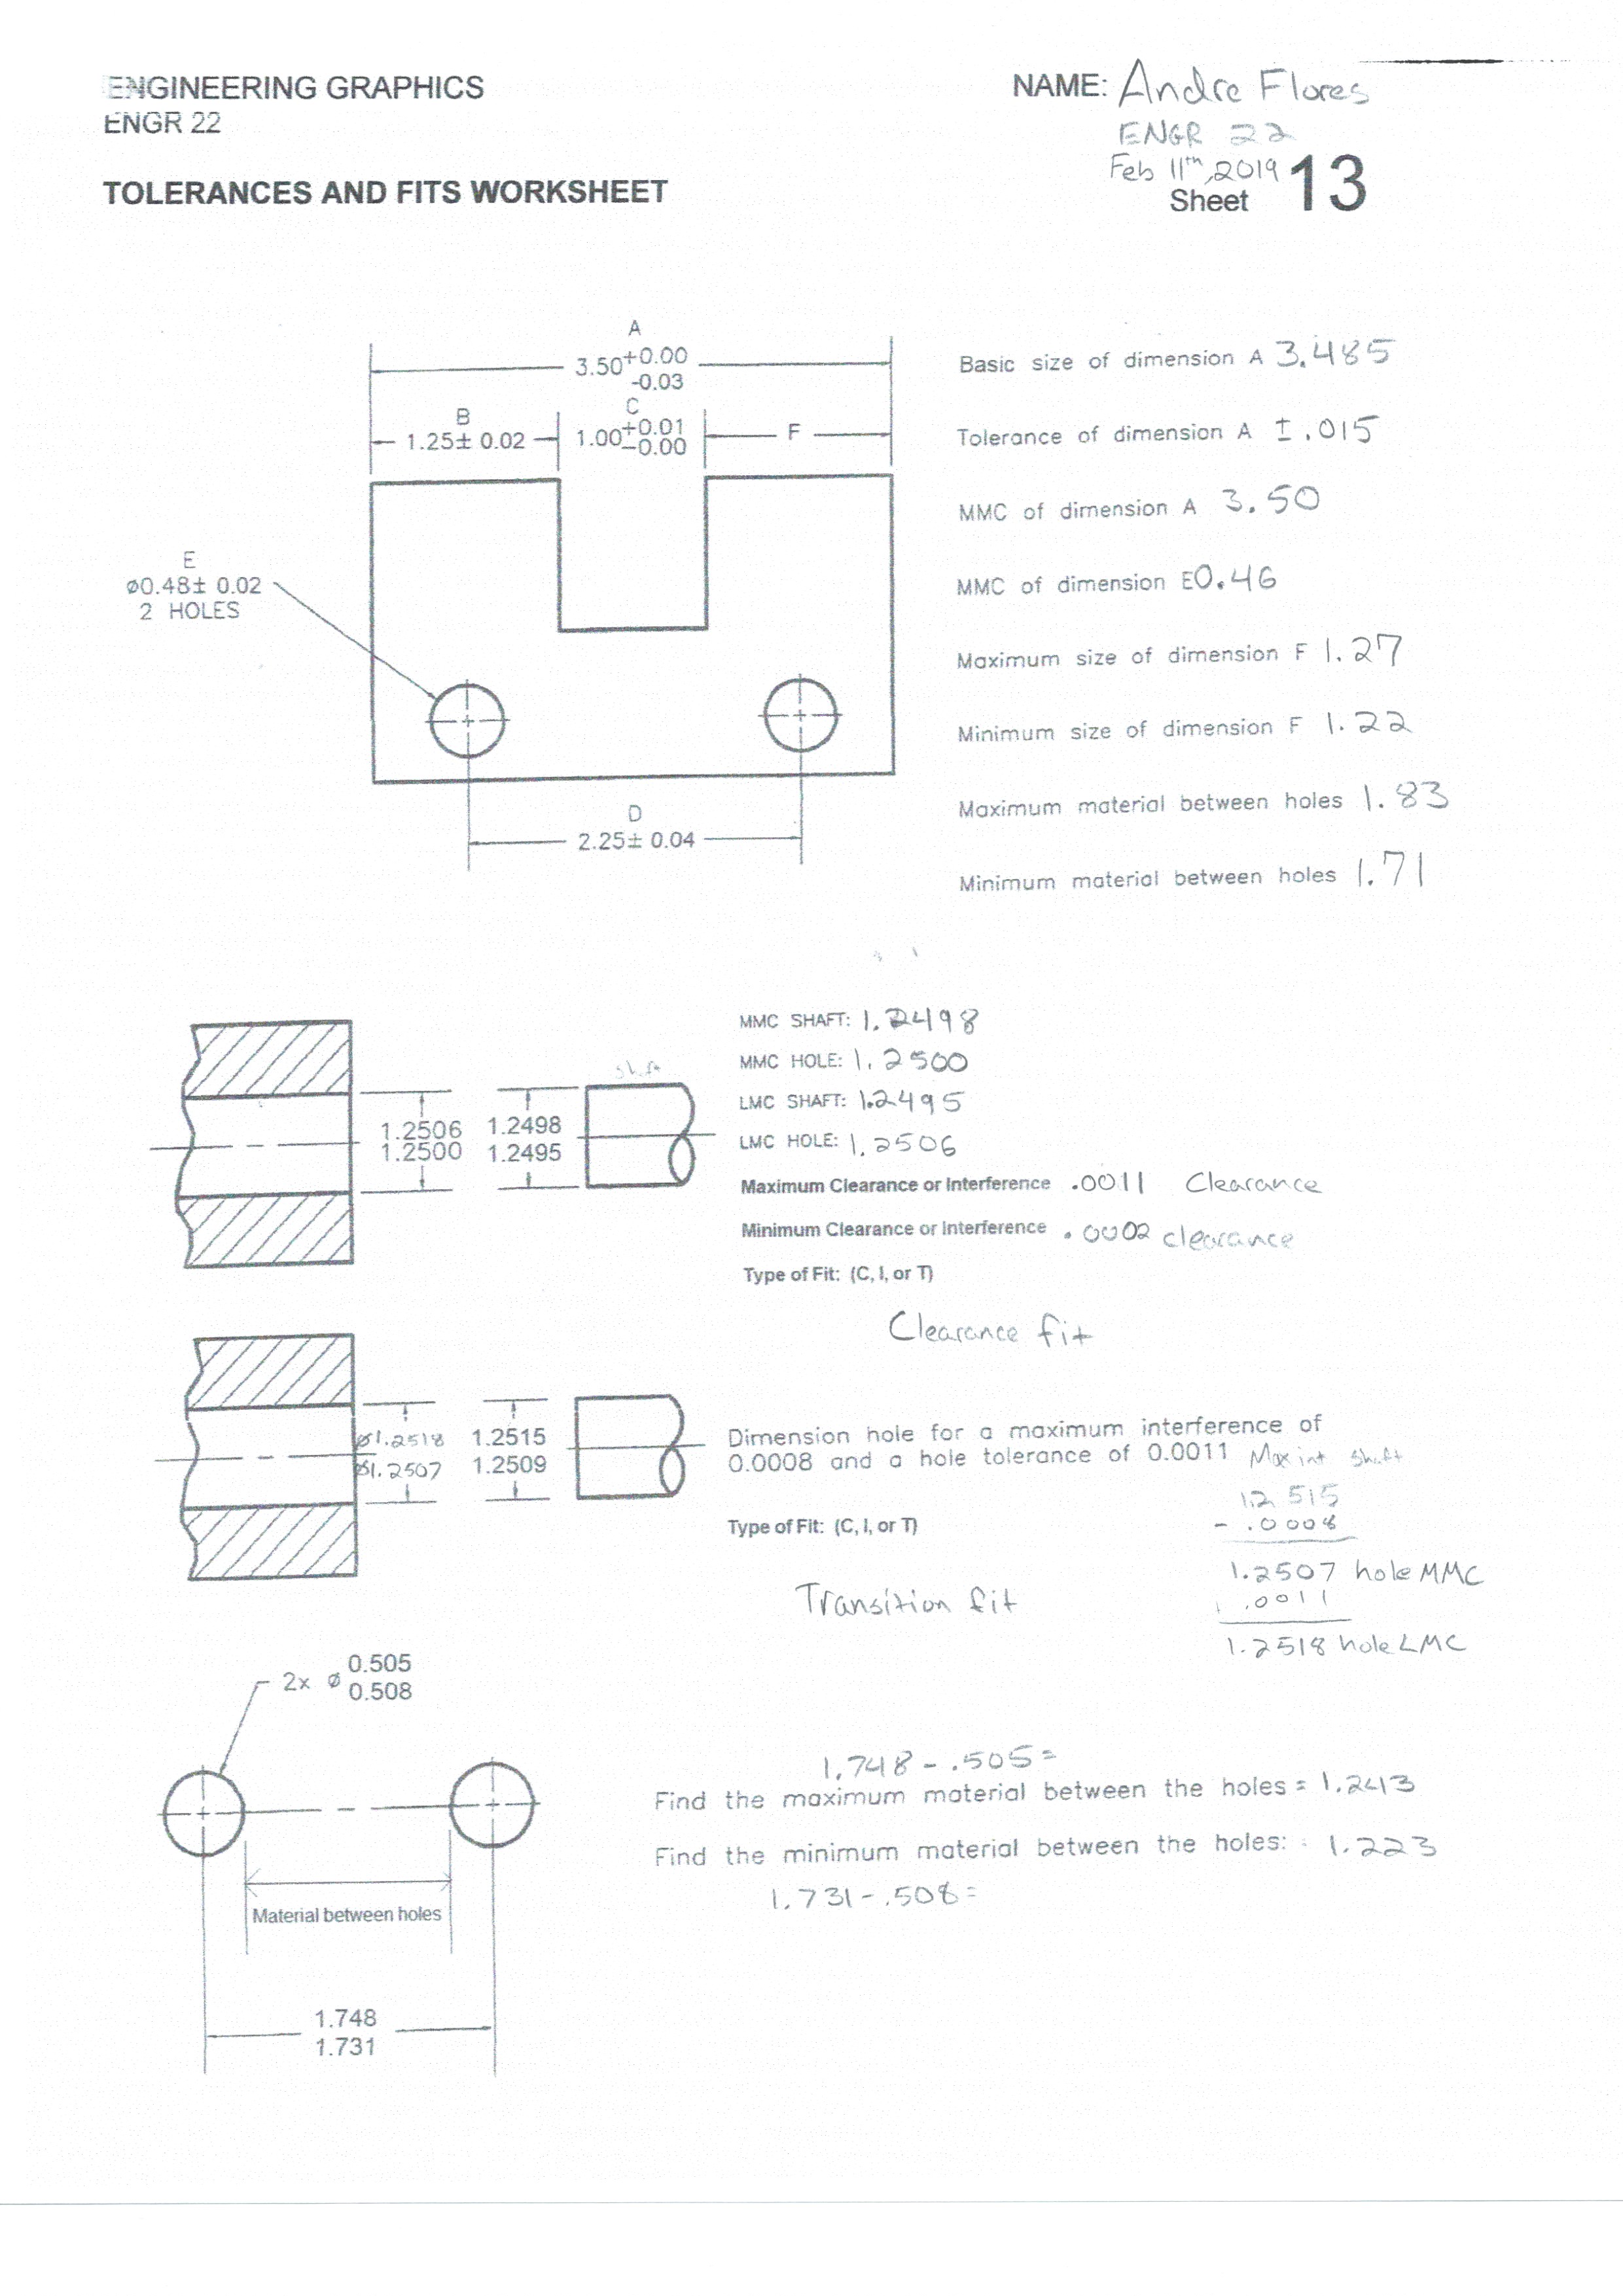 ENGINEERING GRAPHICS
ENGR 22
NAME: Andre Flores
ENGR 22
Feb 11th, 2019
Sheet 13
TOLERANCES AND FITS WORKSHEET
A
3.50 +0.00
-0.03
B
1.25± 0.02
C
1.00 +0.01
-0.00
F
E
ø0.48± 0.02
2 HOLES
D
2.25± 0.04
Basic size of dimension A 3.485
Tolerance of dimension A ± .015
MMC of dimension A 3.50
MMC of dimension E 0.46
Maximum size of dimension F 1.27
Minimum size of dimension F 1.22
Maximum material between holes 1.83
Minimum material between holes 1.71
1.2506
1.2500
1.2498
1.2495
Shaft
MMC SHAFT: 1.2498
MMC HOLE: 1.2500
LMC SHAFT: 1.2495
LMC HOLE: 1.2506
Maximum Clearance or Interference .0011 Clearance
Minimum Clearance or Interference .0002 clearance
Type of Fit: (C, I, or T)
Clearance fit
ø1.2518
ø1.2507
1.2515
1.2509
Dimension hole for a maximum interference of
0.0008 and a hole tolerance of 0.0011 Max int Shaft
1.2515
- .0008
1.2507 hole MMC
.0011
1.2518 hole LMC
Type of Fit: (C, I, or T)
Transition fit
2x ø 0.505
0.508
Material between holes
1.748
1.731
1.748 - .505 =
Find the maximum material between the holes = 1.243
Find the minimum material between the holes: = 1.223
1.731 - .508 =